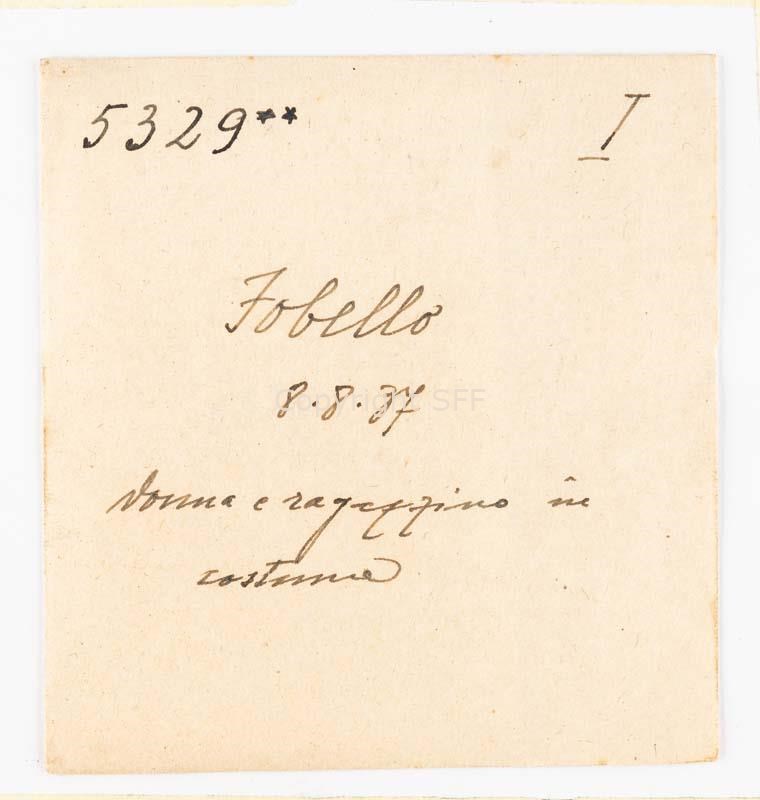 5329** I
Fobello
8.8.37
Copyright SFF
donna e ragazzino in
costume